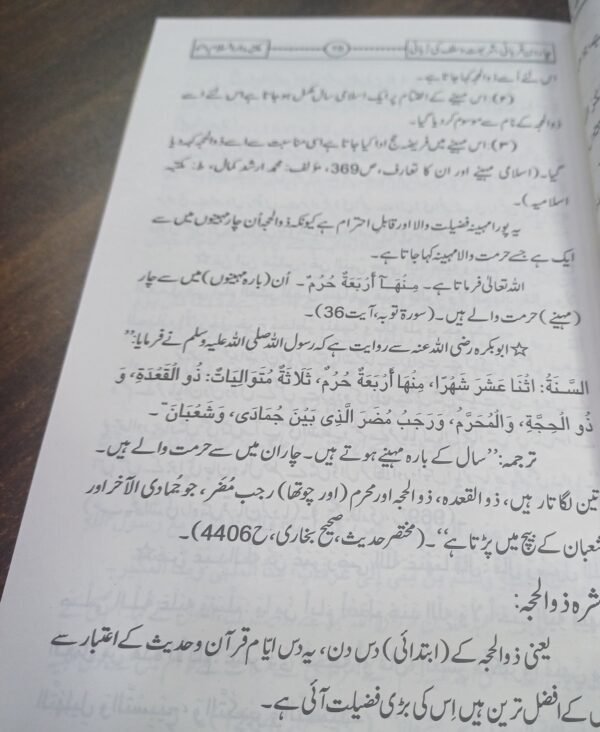 اس لئے اُسے ذوالحجہ کہا جاتا ہے۔
(۲) اس مہینے کے اختتام پر ایک اسلامی سال مکمل ہو جاتا ہے اس لئے اسے
ذوالحجہ کے نام سے موسوم کر دیا گیا۔
(۳) اس مہینے میں فریضۂ حج ادا کیا جاتا ہے اسی مناسبت سے اسے ذوالحجہ کہہ دیا
گیا۔ (اسلامی مہینے اور ان کا تعارف، ص369، مؤلف: محمد ارشد کمال، ط: مکتبہ
اسلامیہ)۔
یہ پورا مہینہ فضیلت والا اور قابلِ احترام ہے کیونکہ ذوالحجہ اُن چار مہینوں میں سے
ایک ہے جسے حرمت والا مہینہ کہا جاتا ہے۔
اللہ تعالیٰ فرماتا ہے۔ مِنْهَآ أَرْبَعَةٌ حُرُمٌ۔ اُن (بارہ مہینوں) میں سے چار
(مہینے) حرمت والے ہیں۔ (سورۃ توبہ، آیت 36)۔
☆ ابوبکرہ رضی اللہ عنہ سے روایت ہے کہ رسول اللہ صلی اللہ علیہ وسلم نے فرمایا: ’’
السَّنَةُ: اثْنَا عَشَرَ شَهْرًا، مِنْهَا أَرْبَعَةٌ حُرُمٌ، ثَلَاثَةٌ مُتَوَالِيَاتٌ: ذُو الْقَعْدَةِ، وَ
ذُو الْحِجَّةِ، وَالْمُحَرَّمُ، وَرَجَبُ مُضَرَ الَّذِي بَيْنَ جُمَادَى، وَشَعْبَانَ‘‘۔
ترجمہ: ’’سال کے بارہ مہینے ہوتے ہیں۔ چار ان میں سے حرمت والے ہیں۔
تین لگاتار ہیں، ذوالقعدہ، ذوالحجہ اور محرم (اور چوتھا) رجب مُضَر، جو جُمادی الآخر اور
شعبان کے بیچ میں پڑتا ہے‘‘۔ (مختصر حدیث، صحیح بخاری، ح4406)۔
شرہ ذوالحجہ:
یعنی ذوالحجہ کے (ابتدائی) دس دن، یہ دس ایّام قرآن وحدیث کے اعتبار سے
کے افضل ترین ہیں اِس کی بڑی فضیلت آئی ہے۔